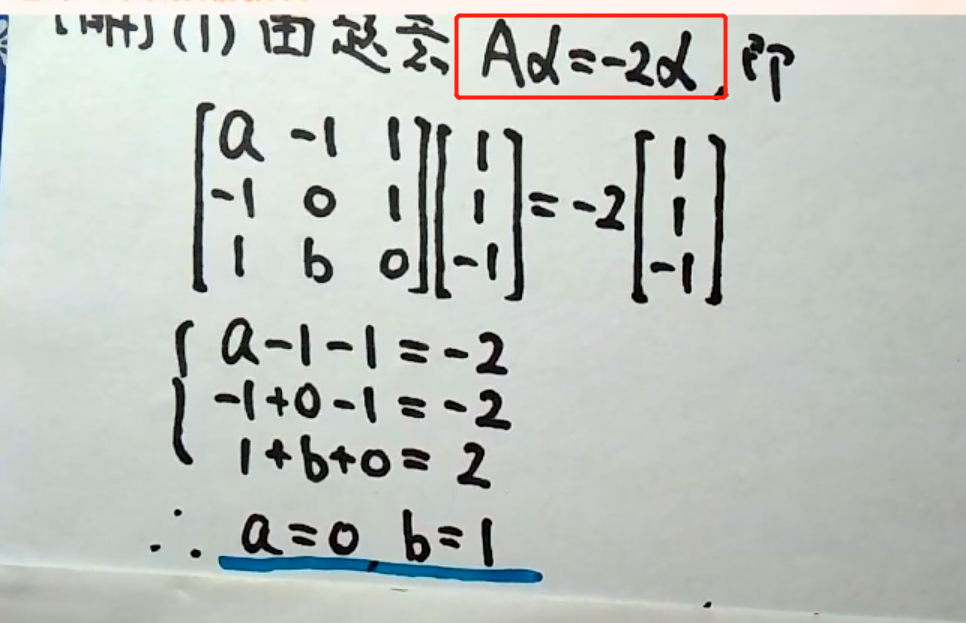 [解] (1) 由题意, Aα=-2α, 即
[a -1 1; -1 0 1; 1 b 0] [1; 1; -1] = -2 [1; 1; -1]
{ a-1-1=-2
-1+0-1=-2
1+b+0=2
∴ a=0 b=1